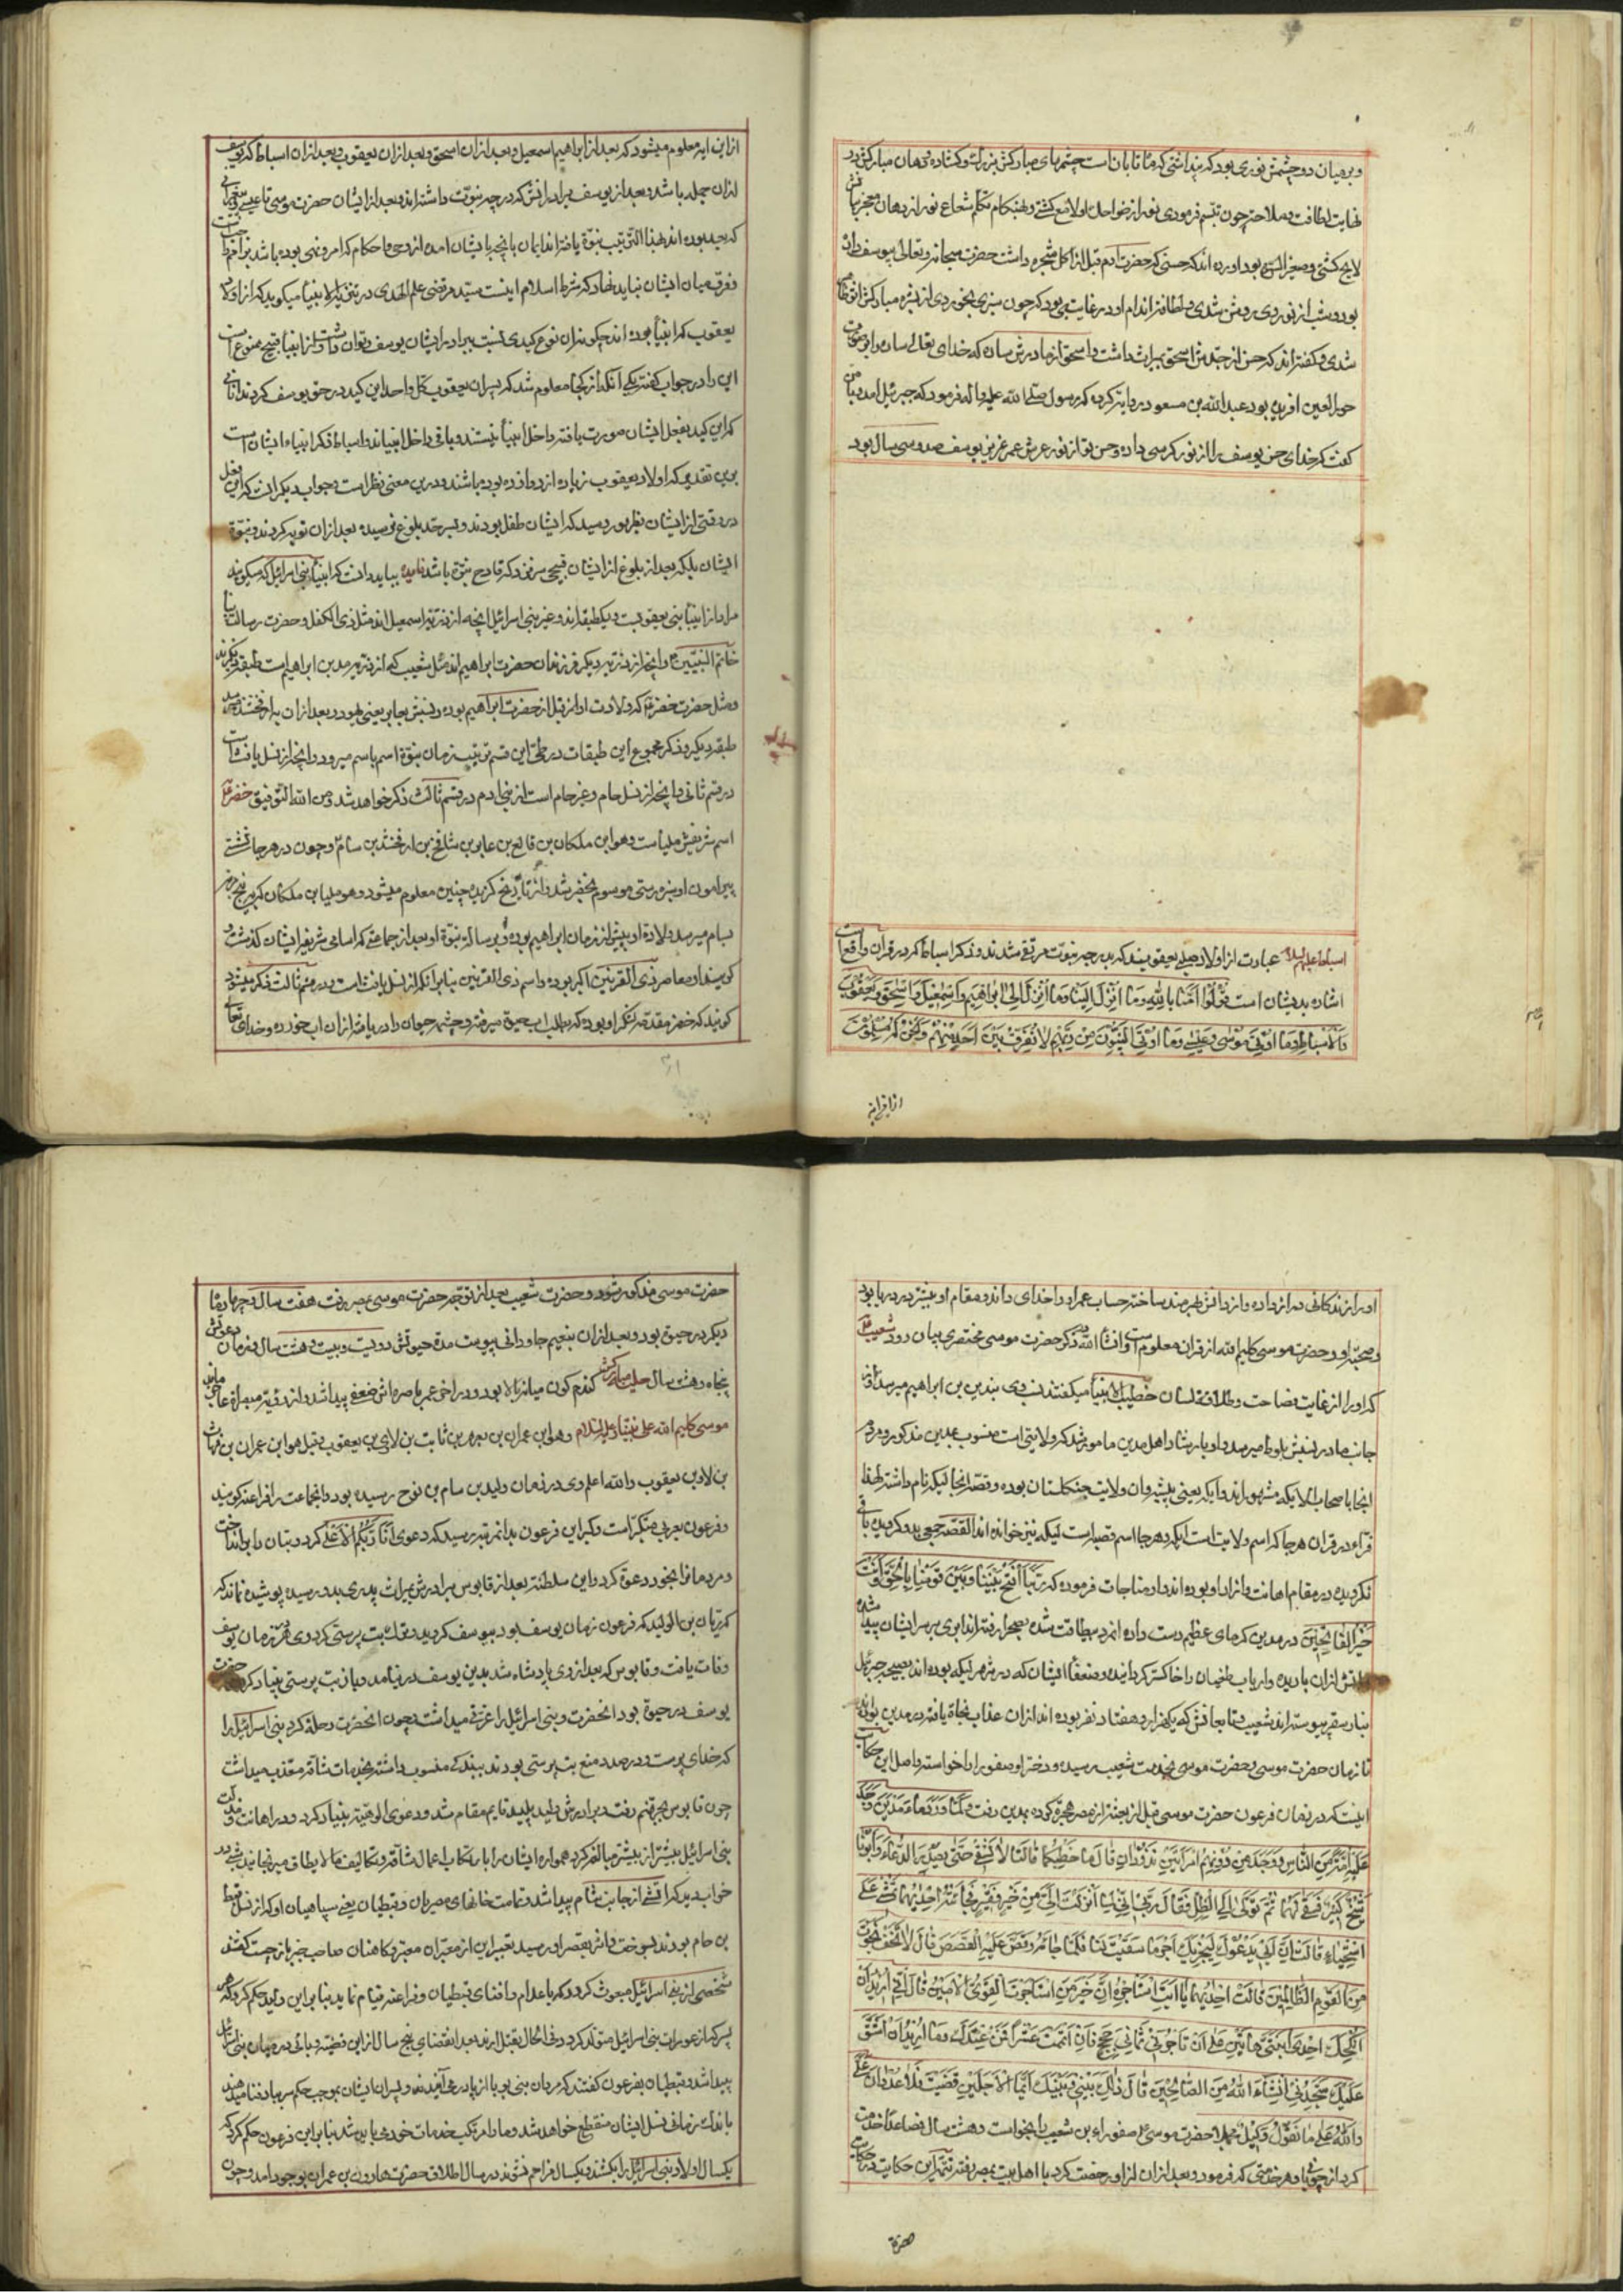 و در میان دو چشمش نوری بود که پنداشتی که ماه تابان است چشمهای مبارکش بزرگ و کشاده و دهان مبارکش در
نهایت لطافت و ملاحت چون تبسم فرمودی نور از ضواحک او لامع کشتی و بهنکام تکلم شعاع نور از دهان معجز
لایح کشتی و آورده اند که حسنی که حضرت آدم قبل از اکل شجره داشت حضرت سبحانه و تعالی بیوسف داد
بود و شب از نور روی روشن شدی و لطافت اندام او در غایتی بود که چون سبزی بخوردی از بشره مبارکش
شدی و کفته اند که حسن از جدش اسحق بمیراث داشت و اسحق از مادرش ساره که خدای تعالی ساره را بر صورت
حور العین آفریده بود عبد الله بن مسعود روایت کرده که رسول صلی الله علیه و آله فرمود که جبرئیل آمد و بمن
کفت که خدای حسن یوسف را از نور کرسی داده و حسن تو از نور عرش عمر عزیز یوسف صد و سی سال بود
اسباط علیهم السلام عبارت از اولاد یعقوبیند که بدرجه نبوت مرتقی شدند و ذکر اسباط که در قرآن واقع است
اشاره بدیشان است قولوا آمنا بالله وما انزل الینا وما انزل الی ابراهیم واسمعیل واسحق ویعقوب
والاسباط وما اوتی موسی وعیسی وما اوتی النبیون من ربهم لا نفرق بین احد منهم ونحن له مسلمون
از این آیه
از این آیه معلوم میشود که بعد از ابراهیم اسمعیل و بعد از آن اسحق و بعد از آن یعقوب و بعد از آن اسباط که یوسف
از آن جمله باشد و بعد از یوسف برادرانش که درجه نبوت داشته اند و بعد از ایشان حضرت موسی تا عیسی
که بعد بوده اند بهذا الترتیب نبوة یافته اند ایمان بآنچه بایشان آمده از وحی و احکام که امر و نهی بوده باشد
و فرق میان ایشان نباید نهاد که شرط اسلام اینست سید مرتضی علم الهدی در تنزیه الانبیا میکوید که از اولاد
یعقوب که انبیا بوده اند چکونه آن نوع کیدی نسبت ببرادر ایشان یوسف توان داشت و از انبیا قبیح ممنوع است
این را در جواب کفته یکی آنکه از کجا معلوم شد که پسران یعقوب این کید در حق یوسف کردند
که این کید بفعل ایشان صورت یافته داخل انبیا نیستند و باقی داخل انبیاند و اسباط که انبیاء ایشان است
برین تقدیر که اولاد یعقوب زیاده از دوازده بوده باشند و در این معنی نظر است و جواب دیکر آنست که این فعل
در وقتی از ایشان بظهور رسید که ایشان طفل بودند و بسر حد بلوغ نرسیده بعد از آن توبه کردند و نبوة
ایشان بلکه بعد از بلوغ از ایشان قبیحی سر نزد که قادح نبوة باشد فایده بباید دانست که انبیا بنی اسرائیل که میکویند
مراد از انبیا بنی یعقوبست و یکطبقه اند و غیر بنی اسرائیل آنچه از ذریه اسمعیل اند مثل ذی الکفل و حضرت رسالت
خاتم النبیین و آنچه از ذریه دیکر فرزندان حضرت ابراهیم اند مثل شعیب که از ذریه مدین ابراهیم است طبقه دیکرند
و مثل حضرت خضر که ولادت او از قبل از حضرت ابراهیم بوده و نسبش بعابر یعنی بهود و بعد از آن به ارفخشد میرسد
طبقه دیکر و ذکر مجموع این طبقات در طی این قسم بترتیب زمان نبوة اسم باسم میرود و آنچه از نسل یافث است
در قسم ثانی و آنچه از نسل حام و غیر حام است از بنی آدم در قسم ثالث ذکر خواهد شد و من الله التوفیق خضر
اسم شریفش ملیا است و هو ابن ملکان بن فالغ بن عابر بن شالخ بن ارفخشد بن سام و چون در هر جا نشستی
پیرامون او سبزه رستی موسوم بخضر شد و از تاریخ کزیده چنین معلوم میشود و هو ملیا بن ملکان که به پنج
بسام میرسد و ولادة او پیش از زمان ابراهیم بوده و رسالت نبوة او بعد از جماعتی که اسامی شریفه ایشان کذشت و
کویند او معاصر ذی القرنین اکبر بوده و اسم ذی القرنین بنا بر آنکه از نسل یافث است در قسم ثالث ذکر میشود
کویند که خضر مقدمه لشکر او بود که بطلب آب حیوة میرفت و چشمه حیوان را دریافته از آن آب خورده و خدای تعالی
او را زندکانی دراز داده و از دانش بهره مند ساخته حساب عمر او را خدای داند و مقام او بیشتر در دریا بود
و صحبت او و حضرت موسی کلیم الله از قرآن معلوم است و انشاء الله در ذکر حضرت موسی مختصری بیان رود شعیب
که او را از غایت فصاحت و طلاقت لسان خطیب الانبیا میکفتند نسب وی بمدین بن ابراهیم میرسد و از
جانب مادر نسبش بلوط میرسد و او بارشاد اهل مدین مامور شد که ولایتی است منسوب بمدین مذکور و مردم
آنجا باصحاب الایکه مشهور اند و ایکه یعنی بیشه و آن ولایت جنکلستان بوده و قصبه آنجا لیکه نام داشته لهذا
قراء در قرآن هر جا که اسم ولایت است ایکه و هر جا اسم قصبه است لیکه نیز خوانده اند القصه جمعی بدو کرویده باقی
نکرویده در مقام اهانت و آزار او بوده اند او در مناجات فرموده که ربنا افتح بیننا وبین قومنا بالحق وانت
خیر الفاتحین در مدین کرمای عظیم دست داده مردم بیطاقت شده بصحرا رفته اند ابری بر سر ایشان پیدا شده
آتش از آن باریده و ارباب طغیان را خاکستر کردانیده و ضعفا ایشان که در شهر لیکه بوده اند بصیحه جبرئیل
بنار سقر پیوسته اند شعیب و تابعانش که یکهزار و هفتاد نفر بوده اند از آن عذاب نجاة یافته در مدین بوده اند
تا زمان حضرت موسی و حضرت موسی بخدمت شعیب رسیده و دختر او صفورا را خواسته و اصل این حکایت
اینست که در زمان فرعون حضرت موسی قبل از بعثت از مصر هجرة کرده بمدین رفت ولما ورد ماء مدین وجد
علیه امة من الناس ووجد من دونهم امراتین تذودان قال ما خطبکما قالتا لا نسقی حتی یصدر الرعاء وابونا
شیخ کبیر فسقی لهما ثم تولی الی الظل فقال رب انی لما انزلت الی من خیر فقیر فجاءته احدیهما تمشی علی
استحیاء قالت ان ابی یدعوک لیجزیک اجر ما سقیت لنا فلما جاءه وقص علیه القصص قال لا تخف نجوت
من القوم الظالمین قالت احدیهما یا ابت استاجره ان خیر من استاجرت القوی الامین قال انی ارید ان
انکحک احدی ابنتی هاتین علی ان تاجرنی ثمانی حجج فان اتممت عشرا فمن عندک وما ارید ان اشق
علیک ستجدنی انشاء الله من الصالحین قال ذلک بینی وبینک ایما الاجلین قضیت فلا عدوان علی
والله علی ما نقول وکیل مجملا حضرت موسی صفوراء بن شعیب را بخواست و هشت سال فصاعدا خدمت
کرد از چوپانی و هر خدمتی که فرمود و بعد از آن از او رخصت کرد با اهل بیت بمصر رفت تتمه این حکایت در حکایت
حضرة
حضرت موسی مذکور شود و حضرت شعیب بعد از توجه حضرت موسی بمصر رفت هفت سال و چهار ماه
دیکر در حیوة بود و بعد از آن بنعیم جاودانی پیوست مدة حیوتش دویست و بیست و هشت سال و زمان دعوتش
پنجاه و هشت سال حلیه مبارکش کندم کون میانه بالا بود و در آخر عمر باصره اش ضعفی پیدا شد و از رؤیت مبصراة عاجز
موسی کلیم الله علی نبینا و علیه السلام و هو ابن عمران بن یصهر بن ثابت بن لاوی بن یعقوب و قیل هو ابن عمران بن قاهث
بن لاوی بن یعقوب والله اعلم وی در زمان ولید بن سام بن نوح رسیده بود و آنجماعت را فراعنه کویند
و فرعون بعربی متکبر است و کبر این فرعون بدانمرتبه رسید که دعوی انا ربکم الاعلی کرد و بتان را بر انداخت
و مردمانرا بخود دعوة کرد و این سلطنت بعد از قابوس برادرش بمیراث پدری بدو رسید پوشیده نماند که
که ریان بن الولید که فرعون زمان یوسف بود بیوسف کرویده ترک بت پرستی کرد وی در زمان یوسف
وفات یافت و قابوس که بعد از وی پادشاه شد بدین یوسف در نیامد و باز بت پرستی بنیاد کرد حضرت
یوسف در حیوة بود آنحضرت و بنی اسرائیل را عزتی میداشت و چون آنحضرت رحلة کرد بنی اسرائیل را
که خدای پرست و در صدد منع بت پرستی بودند ببندکی منسوب داشته بخدمات شاقه معذب میداشت
چون قابوس بجهنم رفت و برادرش ولید پلید قایم مقام شد و دعوی الوهیت بنیاد کرد و در اهانت و مذلت
بنی اسرائیل بیشتر از پیشتر مبالغه کرد همواره ایشان را بارتکاب اعمال شاقه و تکالیف ما لا یطاق میرنجانید شبی در
خواب دید که آتشی از جانب شام پیدا شد و تمامت خانهای مصریان و قبطیان یعنی سپاهیان او که از نسل قبط
بن حام بودند بسوخت و آتش بقصر او رسید تعبیر این از معبران معتبر و کاهنان صاحب خبر باز جست کفتند
شخصی از بنی اسرائیل مبعوث کردد که باعدام و افنای قبطیان و فراعنه قیام نماید بنا بر این ولید حکم کرد که هر
پسر که از عورات بنی اسرائیل متولد کردد فی الحال بقتل آرند بعد انقضای پنج سال از این قضیه وبائی در میان بنی اسرائیل
پیدا شد و قبطیان بفرعون کفتند که مردان بنی یوبا از پا در می آیند و پسران ایشان بموجب حکم سر بباد فنا میدهند
باندک زمانی نسل ایشان منقطع خواهد شد و ما را مرتکب خدمات خود می باید شد بنا بر این فرعون حکم کرد که
یکسال اولاد بنی اسرائیل را بکشند و یکسال مزاحم نشوند در سال اطلاق حضرت هارون بن عمران بوجود آمد و چون